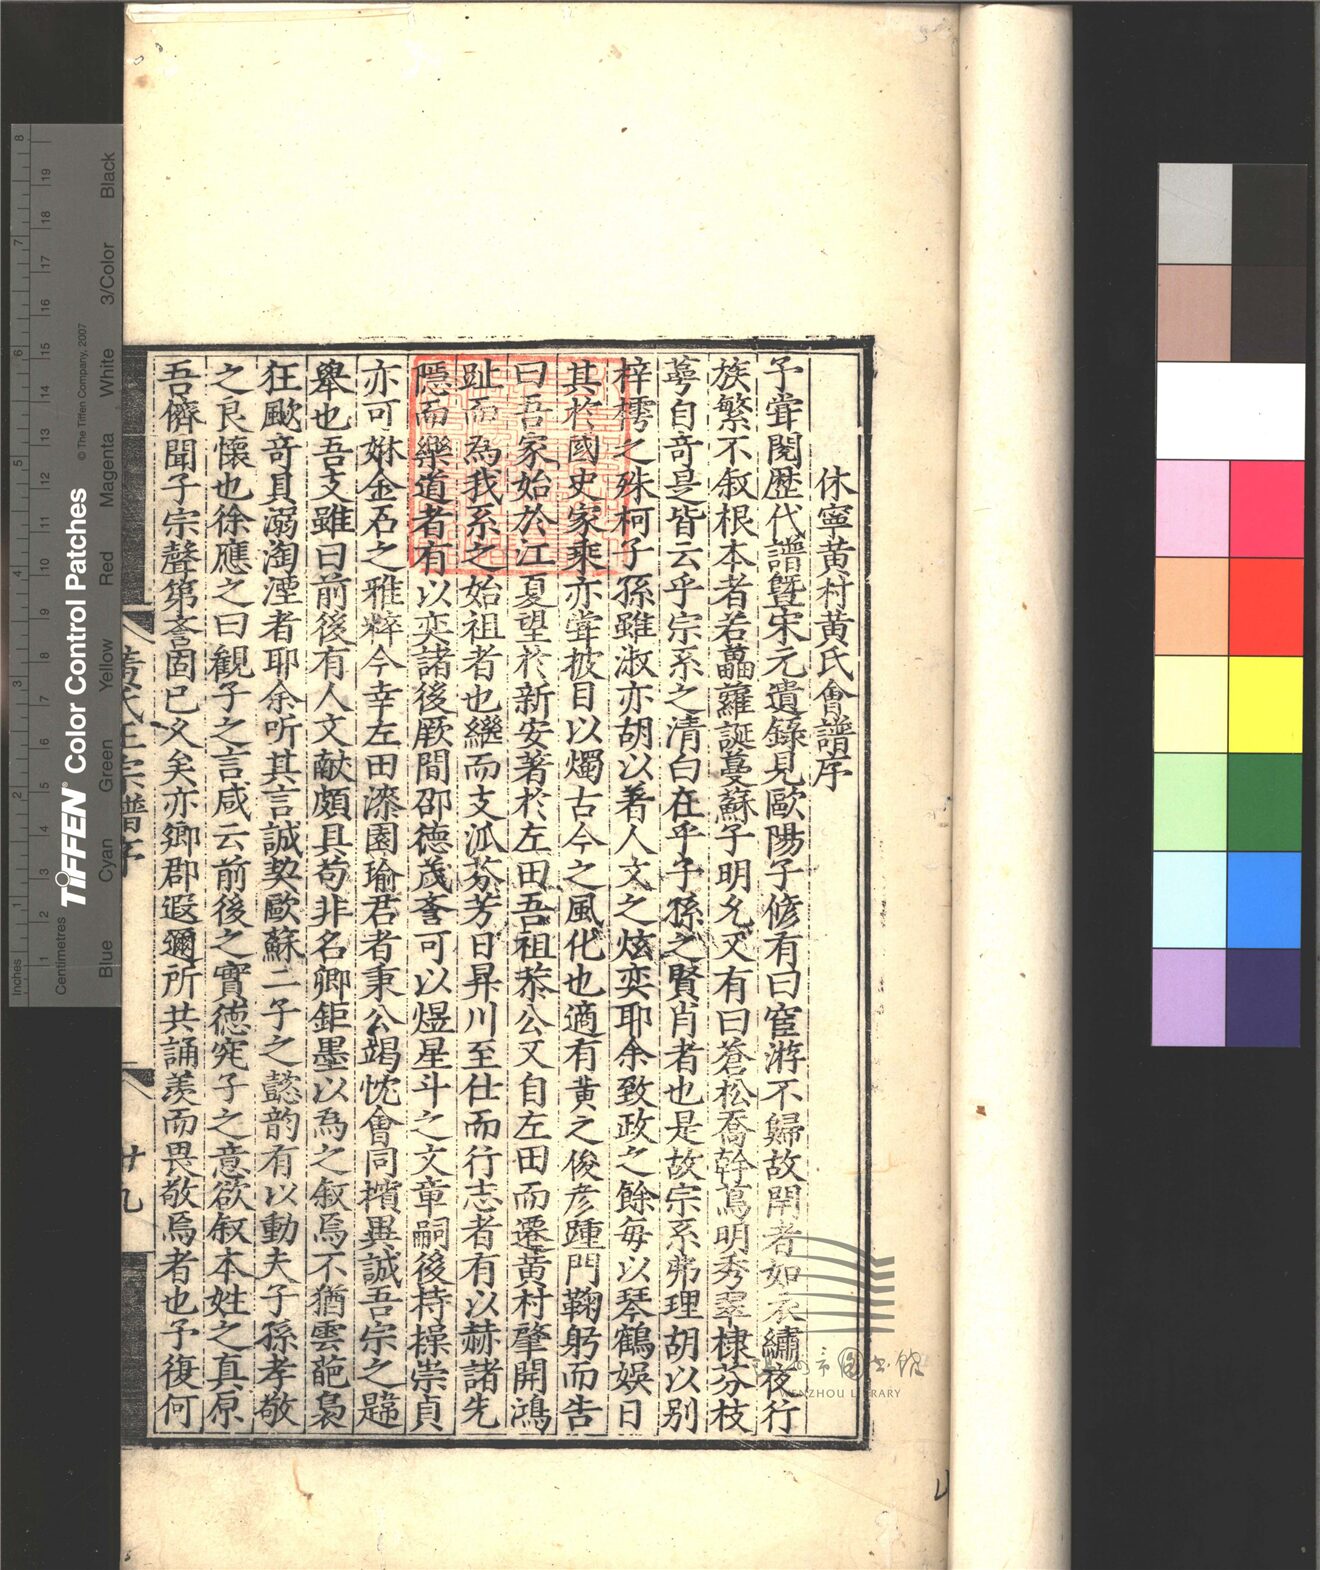 休寧黃村黃氏會譜序
予甞閱歷代譜曁宋元遺錄見歐陽子修有曰宦游不歸故閈者如衣繡夜行
族繁不叙根本者若藟蘿誕蔓蘇子明允又有曰蒼松喬幹蔦明秀翠棣芬枝
萼自奇是皆云乎宗系之清白在乎子孫之賢肖者也是故宗系弗理胡以别
梓樗之殊柯子孫雖淑亦胡以着人文之炫奕耶余致政之餘每以琴鶴娛日
其扵國史家乘亦甞披目以燭古今之風化也適有黃之俊彦踵門鞠躬而告
曰吾家始於江夏望於新安著於左田吾祖恭公又自左田而遷黃村肇開鴻
趾而為我系之始祖者也繼而支泒芬芳日昇川至仕而行志者有以赫諸先
隱而樂道者有以奕諸後厥間卲德茂耋可以煜星斗之文章嗣後持操崇貞
亦可姝金石之雅粹今幸左田漆園瑜君者秉公竭忱會同擯異誠吾宗之韙
舉也吾支雖曰前後有人文献頗具苟非名卿鉅墨以為之叙焉不猶雲葩裊
狂颷奇貝溺淘湮者耶余听其言誠契歐蘇二子之懿韵有以動夫子孫孝敬
之良懷也徐應之曰觀子之言咸云前後之實德究子之意欲叙本姓之真原
吾儕聞子宗聲第耋固已久矣亦卿郡遐邇所共誦羨而畏敬焉者也予復何
黃氏正宗譜序
廿九
温州市图书馆
WENZHOU LIBRARY
TIFFEN® Color Control Patches
© The Tiffen Company, 2007
Inches
Centimetres
Blue Cyan Green Yellow Red Magenta White 3/Color Black
1 2 3 4 5 6 7 8
1 2 3 4 5 6 7 8 9 10 11 12 13 14 15 16 17 18 19